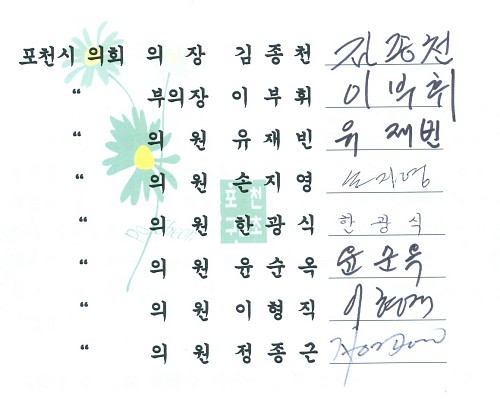 포천시 의회 의 장 김 종 천 김 종 천
“ 부의장 이 부 휘 이 부 휘
“ 의 원 유 재 빈 유 재 빈
“ 의 원 손 지 영 손 지 영
“ 의 원 한 광 식 한 광 식
“ 의 원 윤 순 옥 윤 순 옥
“ 의 원 이 형 직 이 형 직
“ 의 원 정 종 근
포천
구초